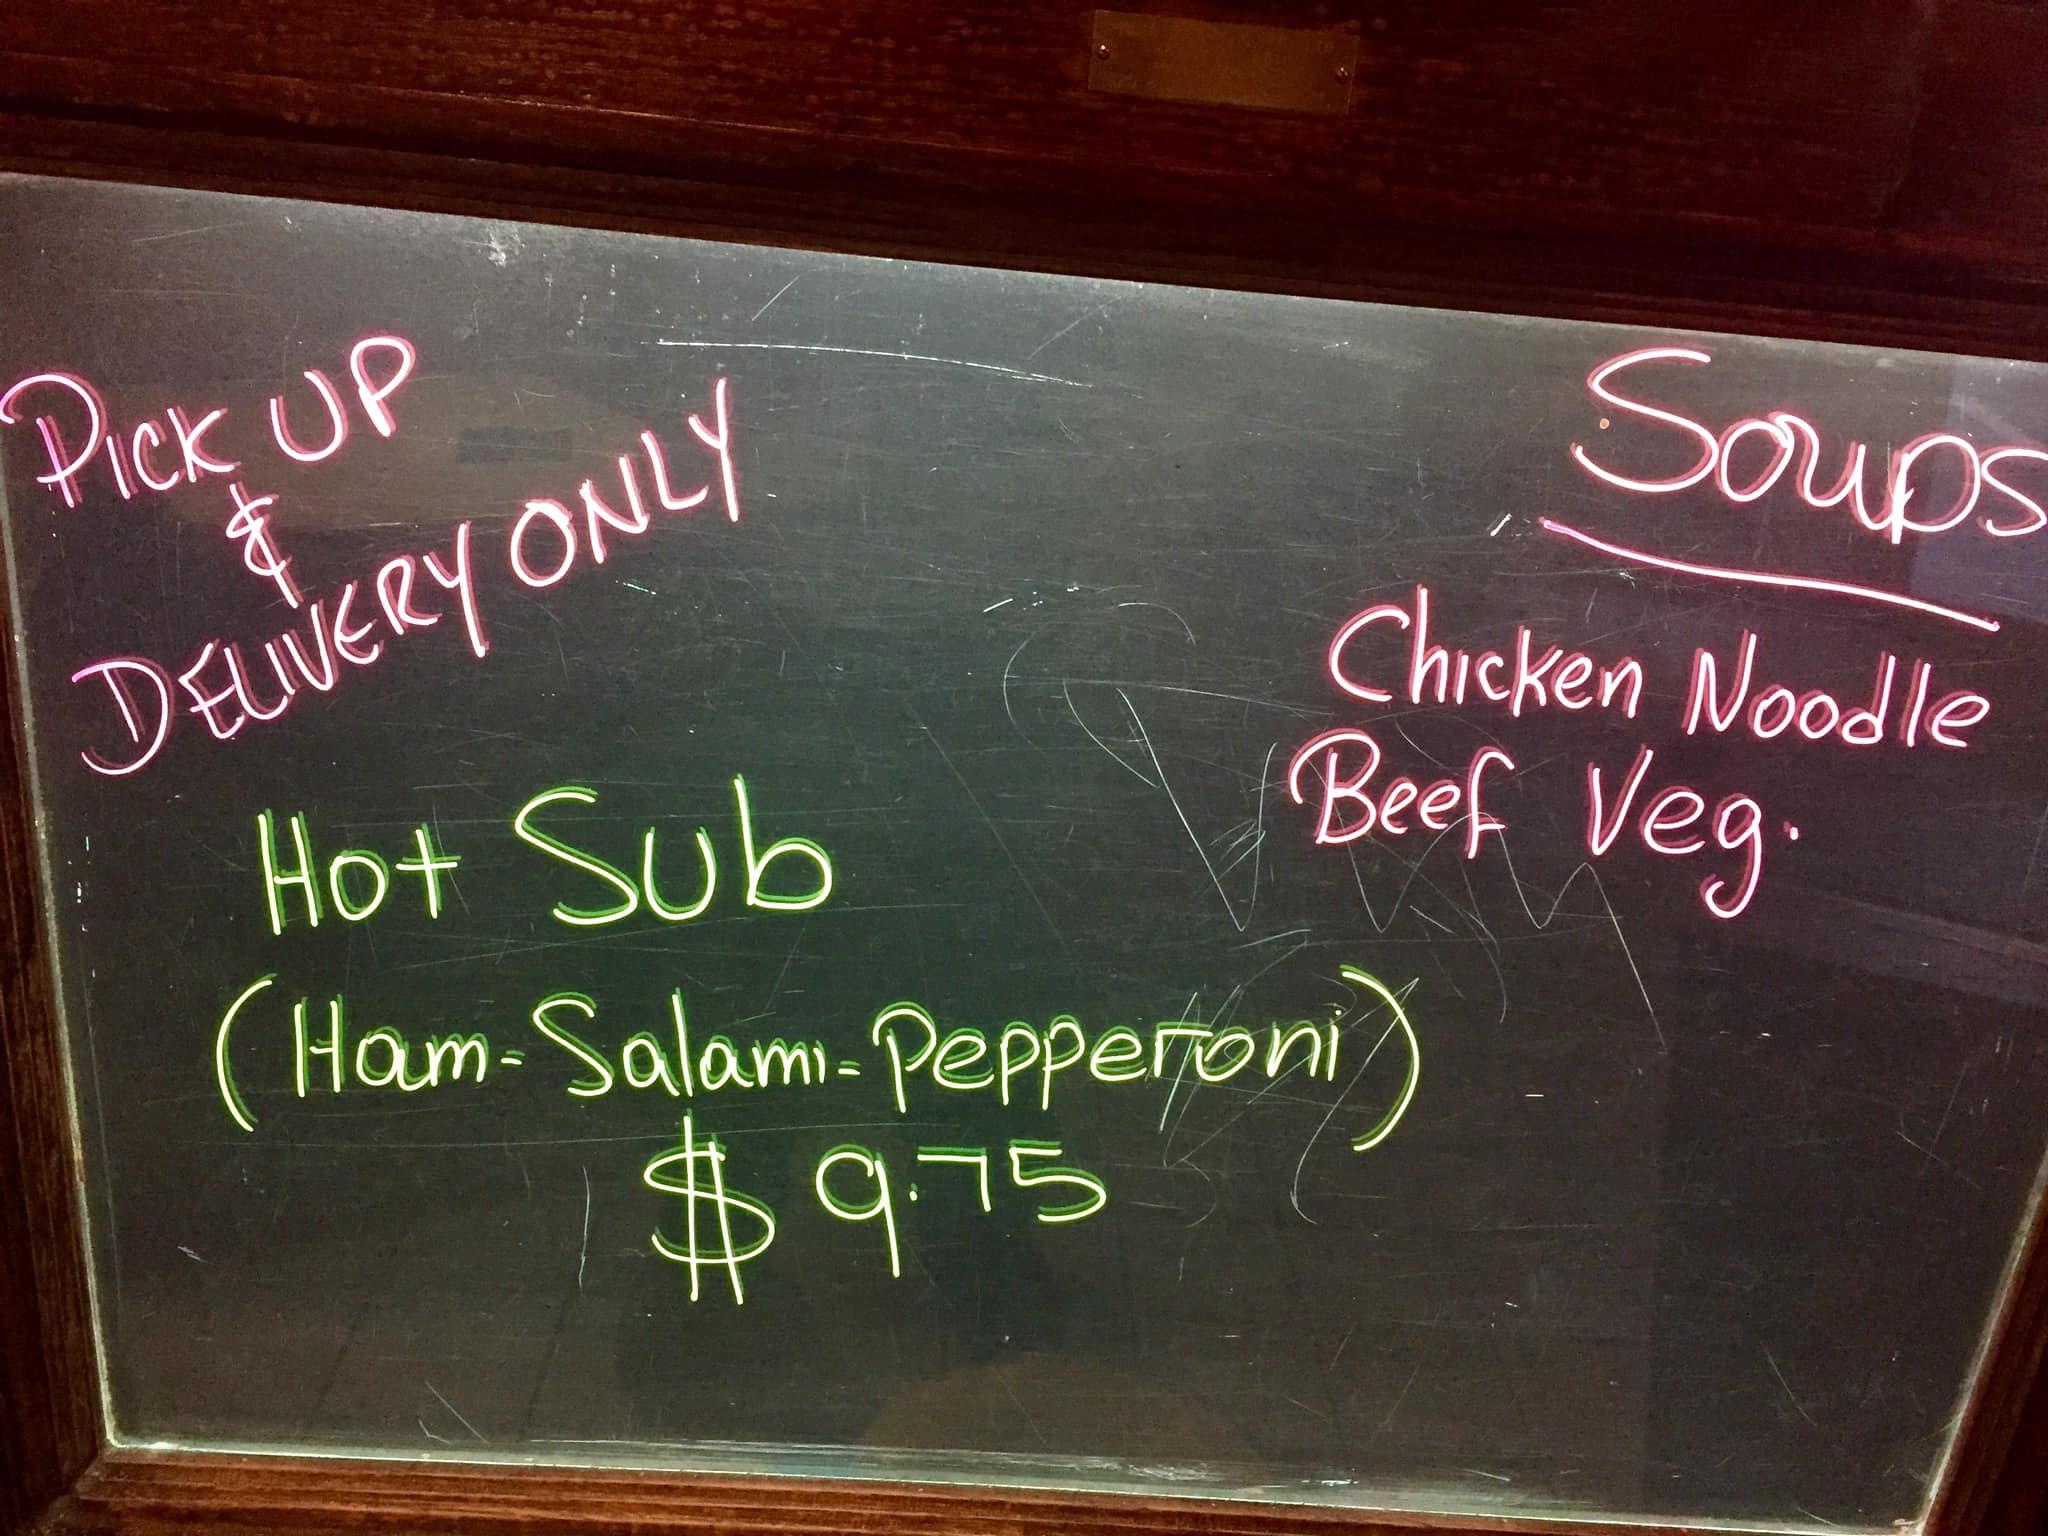 PICK UP
&
DELIVERY ONLY
Soups
Chicken Noodle
Beef Veg.
Hot Sub
(Ham-Salami=Pepperoni)
$ 9.75